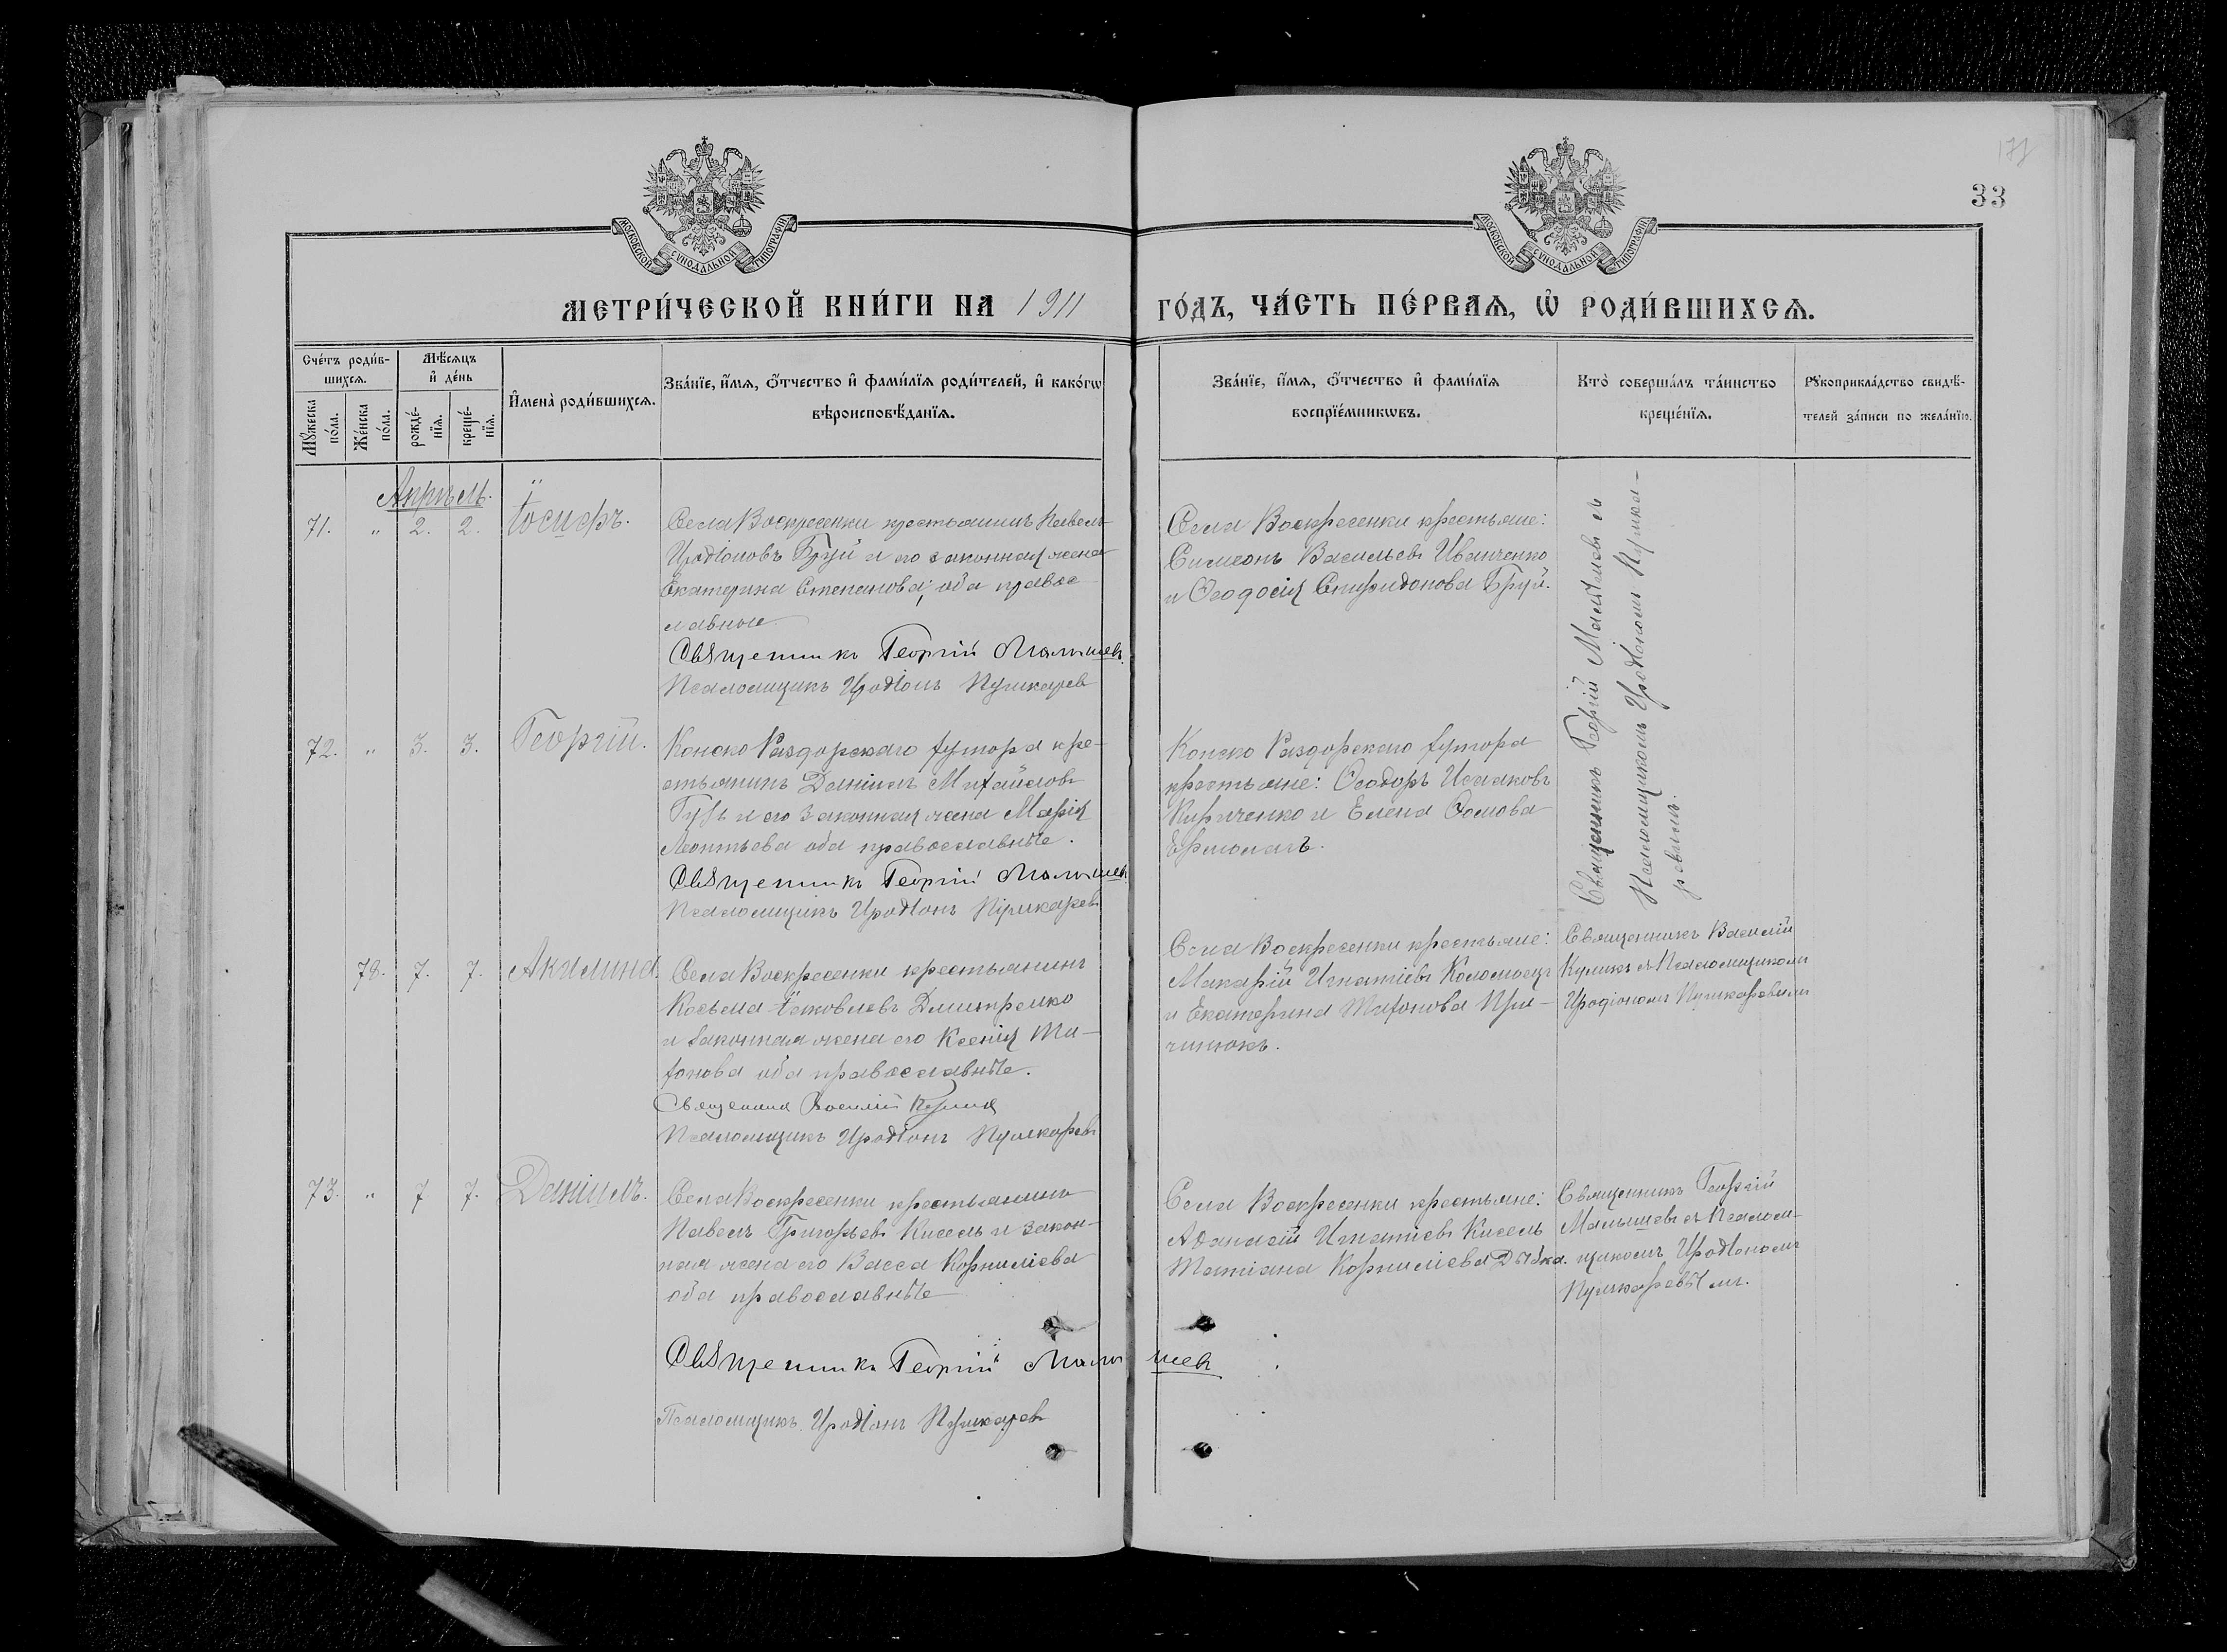 177
33
МОСКОВСКОЙ СѴНОДАЛЬНОЙ ТИПОГРАФІИ
МОСКОВСКОЙ СѴНОДАЛЬНОЙ ТИПОГРАФІИ
МЕТРИ́ЧЕСКОЙ КНИ́ГИ НА 1911 ГО́ДЪ, ЧА́СТЬ ПЕ́РВАѦ, Ѡ҆ РОДИ́ВШИХСѦ.
Сче́тъ роди́в-
шихсѧ.
Мꙋ́жеска по́ла.
Же́нска по́ла.
Мѣ́сѧцъ
и҆ де́нь
рожде́-
нїѧ.
креще́-
нїѧ.
И҆мена̀ роди́вшихсѧ.
Зва́нїе, и҆́мѧ, ѻ҆́тчество и҆ фами́лїѧ роди́телей, и҆ како́гѡ
вѣроисповѣ́данїѧ.
Зва́нїе, и҆́мѧ, ѻ҆́тчество и҆ фами́лїѧ
воспрїе́мникѡвъ.
Кто̀ соверша́лъ та́инство
креще́нїѧ.
Рꙋкоприкла́дство свидѣ́-
телей за́писи по жела́нїю.
Апрѣль.
71. " 2. 2. Іосифъ.
Села Воскресенки крестьянинъ Павелъ
Иродіоновъ Бруй и его законная жена
Екатерина Степанова; оба право-
славные
Священникъ Георгій Малышевъ.
Псаломщикъ Иродіонъ Пушкаревъ
Села Воскресенки крестьяне:
Симеонъ Васильевъ Иванченко
и Ѳеодосія Спиридонова Бруй.
Священникъ Георгій Малышевъ съ
Псаломщикомъ Иродіономъ Пушка-
ревымъ.
72. " 3. 3. Георгій.
Конско Раздорскаго хутора кре-
стьянинъ Даніилъ Михайловъ
Гузь и его законная жена Марія
Леонтьева оба православные.
Священникъ Георгій Малышевъ.
Псаломщикъ Иродіонъ Пушкаревъ
Конско Раздорскаго хутора
крестьяне: Ѳеодоръ Исааковъ
Кириченко и Елена Ѳомова
Ермолаъ.
78. 7. 7. Акилина
Села Воскресенки крестьянинъ
Косьма Іаковлевъ Дмитренко
и законная жена его Ксенія Ти-
хонова оба православные.
Священникъ Василій Куликъ
Псаломщикъ Иродіонъ Пушкаревъ
Села Воскресенки крестьяне:
Макарій Игнатіевъ Коломоецъ
и Екатерина Тихонова При-
чинюкъ.
Священникъ Василій
Куликъ съ Псаломщикомъ
Иродіономъ Пушкаревымъ
73. " 7 7. Даніилъ.
Села Воскресенки крестьянинъ
Павелъ Григорьевъ Кисель и закон-
ная жена его Васса Корниліева
оба православные
Священникъ Георгій Малышевъ
Псаломщикъ Иродіонъ Пушкаревъ
Села Воскресенки крестьяне:
Аѳанасій Игнатіевъ Кисель
Татіана Корниліева
Священникъ Георгій
Малышевъ съ Псалом-
щикомъ Иродіономъ
Пушкаревымъ.